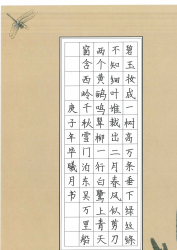 碧玉妆成一树高万条垂下绿丝绦
不知细叶谁裁出二月春风似剪刀
两个黄鹂鸣翠柳一行白鹭上青天
窗含西岭千秋雪门泊东吴万里船
庚子年毕曦月书